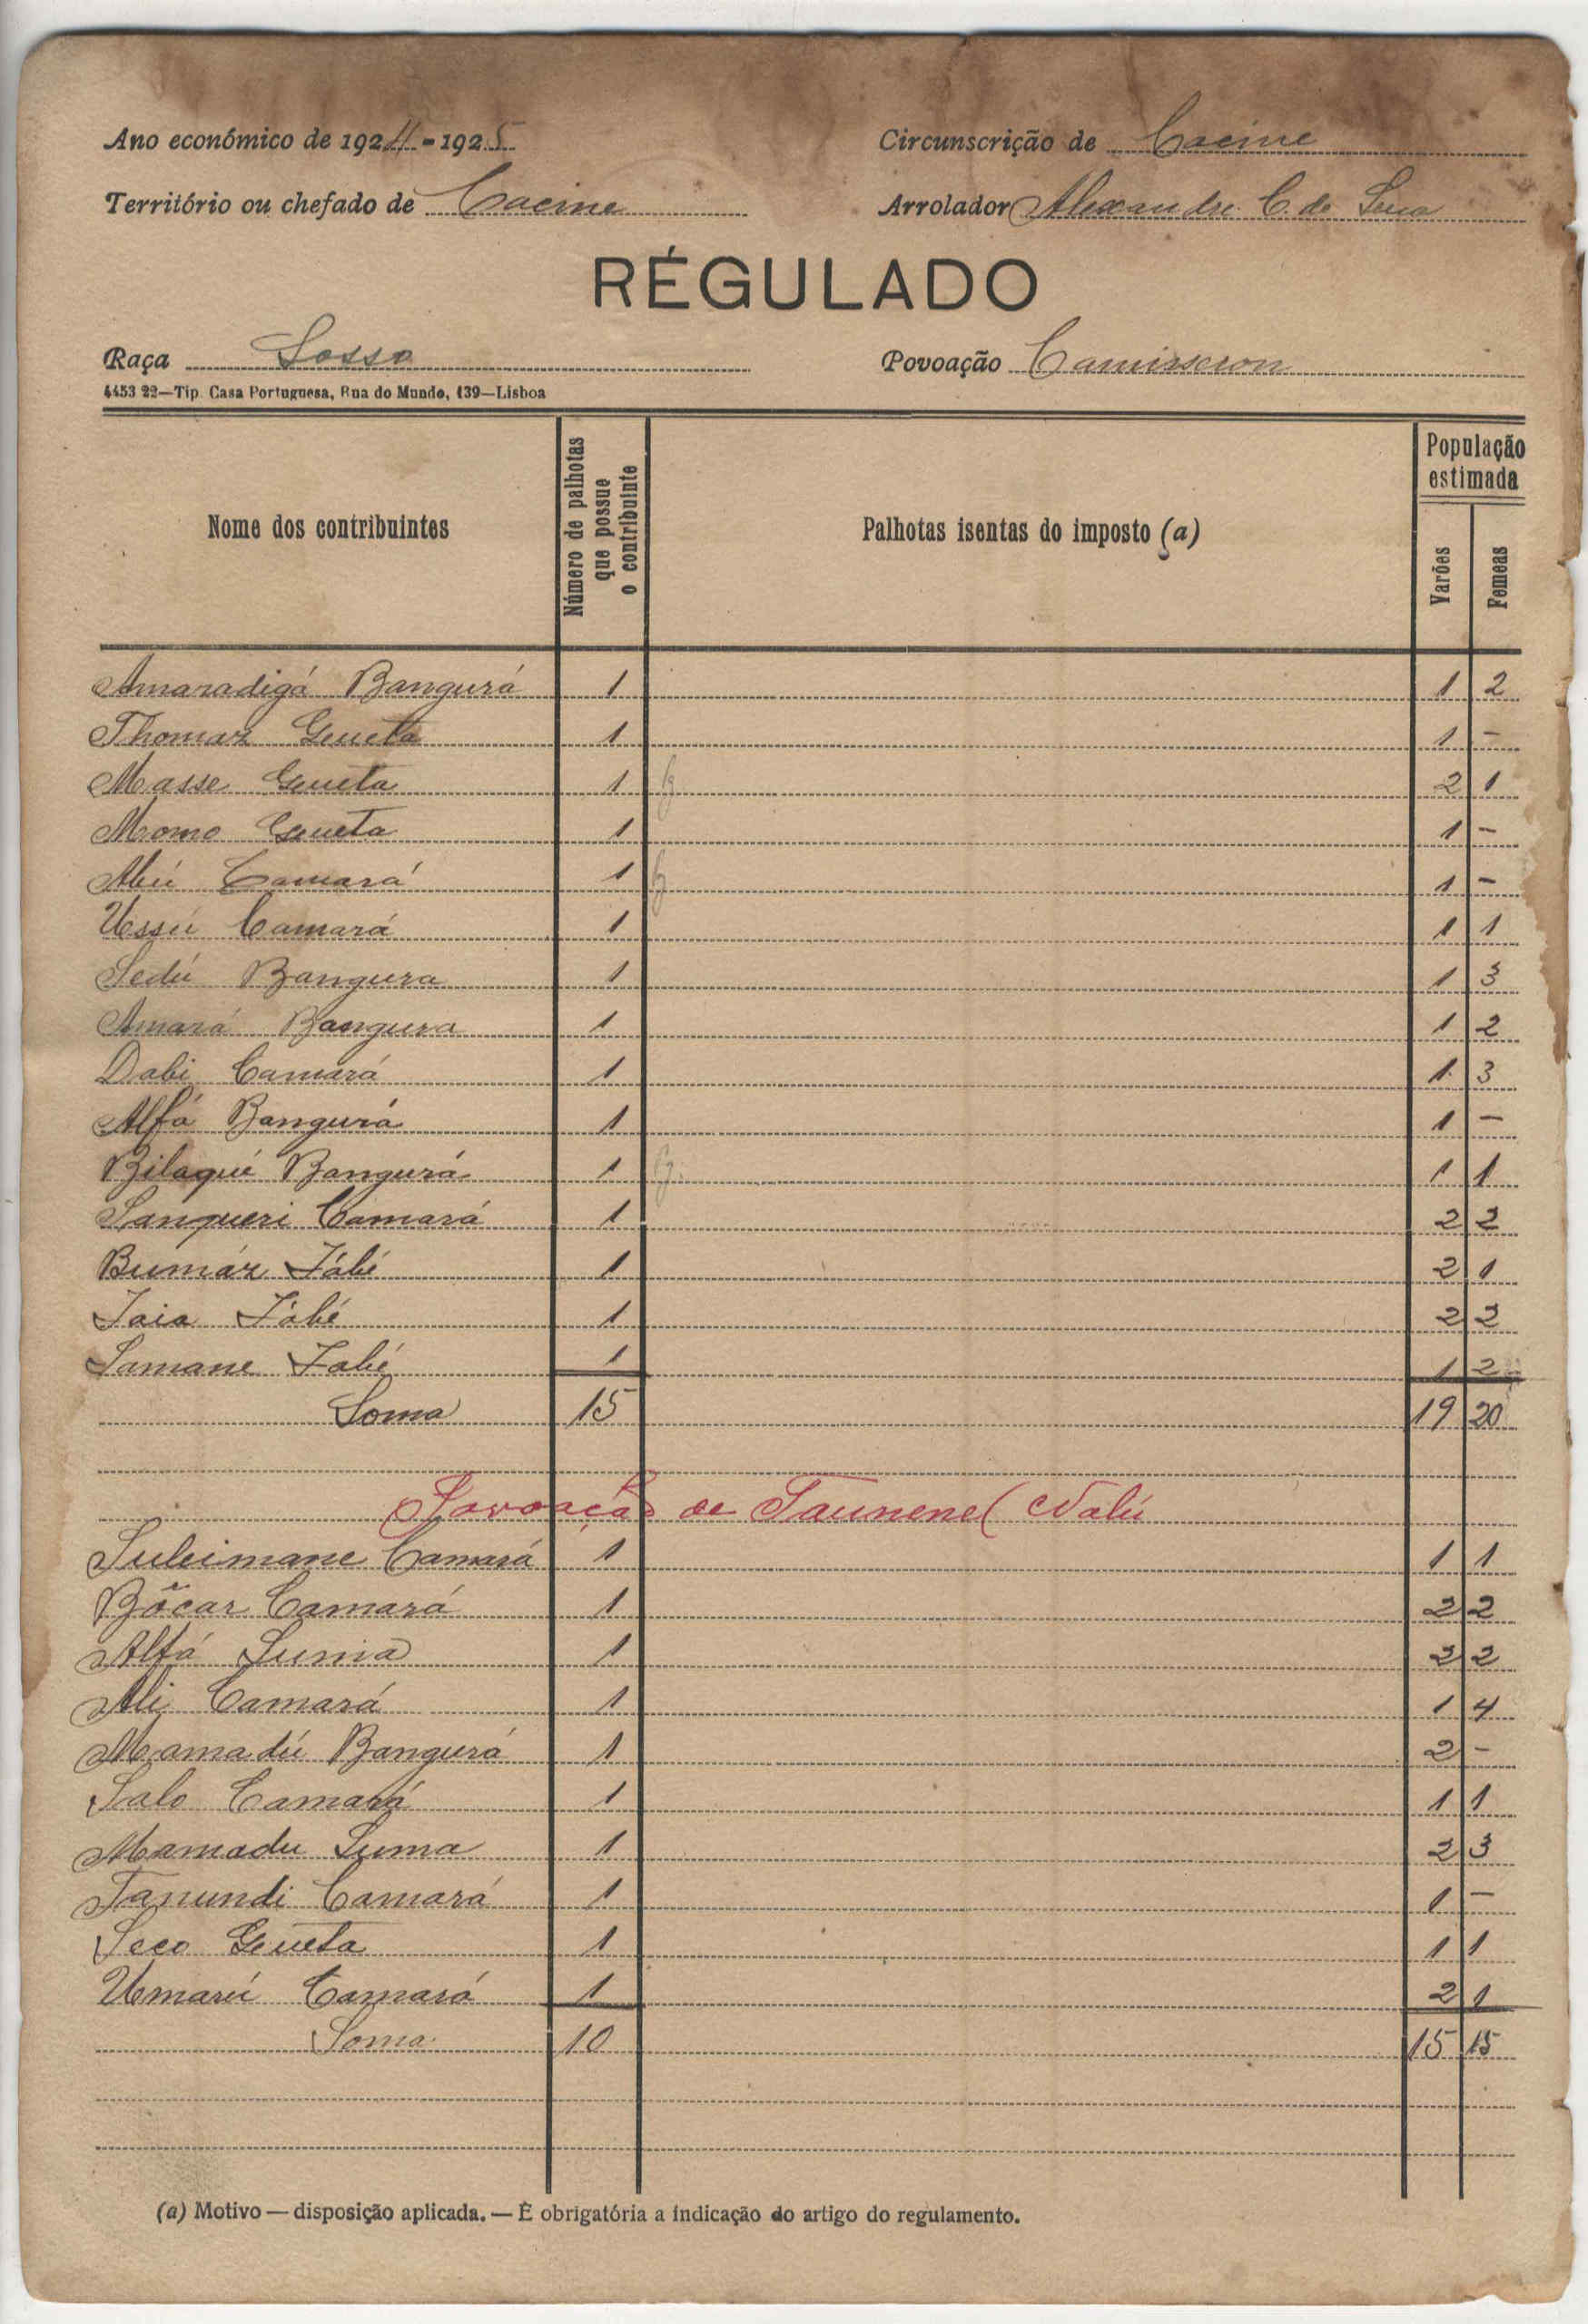 Ano económico de 1924-1925 Circunscrição de Cacine
Território ou chefado de Cacine Arrolador Alexandre C. de
RÉGULADO
Raça Sosso Povoação
4453 22—Tip. Casa Portuguesa, Rua do Mundo, 139—Lisboa
Nome dos contribuintes Número de palhotas que possue o contribuinte Palhotas isentas do imposto (a) População estimada Varões Femeas
Amaradigá Bangurá 1 1 2
Thomaz Gueta 1 1 -
Masse Gueta 1 2 1
Momo Gueta 1 1 -
Abú Camará 1 1 -
Ussú Camará 1 1 1
Sedú Bangura 1 1 3
Amará Bangura 1 1 2
Dabi Camará 1 1 3
Alfá Bangurá 1 1 -
Bilaqué Bangurá 1 1 1
Sanqueri Camará 1 2 2
Bumáz Fábé 1 2 1
Iaia Fábé 1 2 2
Samane Fabé 1 1 2
Soma 15 19 20
Povoação de Taunene (Nalú
Suleimane Camará 1 1 1
Bôcar Camará 1 2 2
Alfá Suma 1 2 2
Ali Camará 1 1 4
Mamadú Bangurá 1 2 -
Salo Camará 1 1 1
Mamadu Suma 1 2 3
Tanundi Camará 1 1 -
Seco Gueta 1 1 1
Umarú Camará 1 2 1
Soma 10 15 15
(a) Motivo — disposição aplicada. — É obrigatória a indicação do artigo do regulamento.